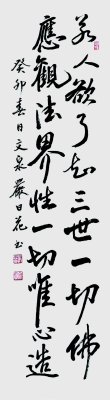 若人欲了知三世一切佛
應觀法界性一切唯心造
癸卯春日文泉嚴日花书